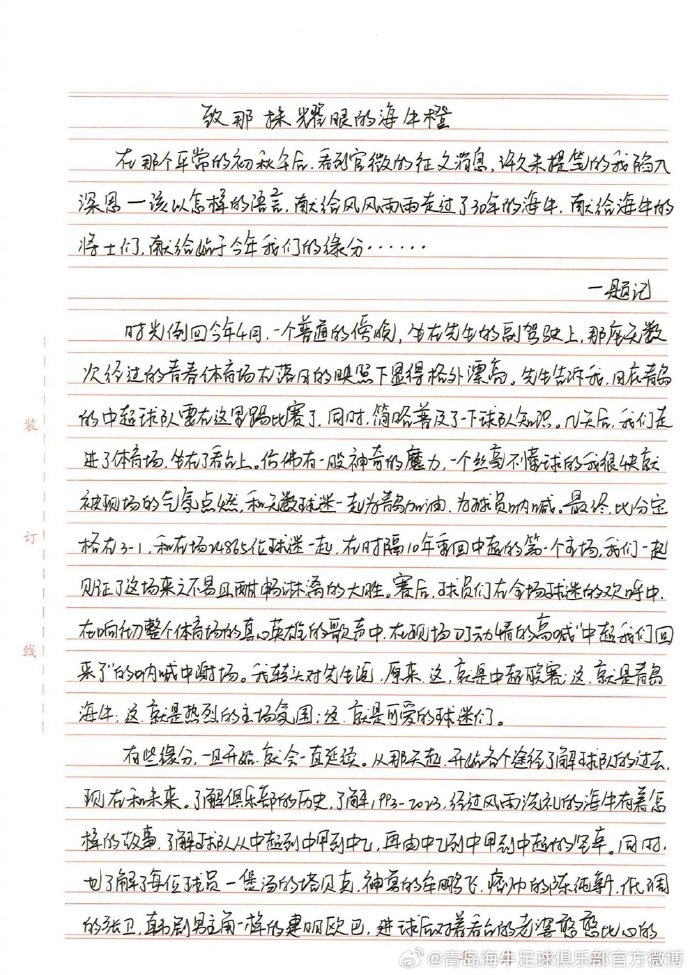 致那抹耀眼的海牛橙
在那个平常的初秋午后，看到官微的征文消息，许久未提笔的我陷入
深思—该以怎样的语言，献给风风雨雨走过了30年的海牛，献给海牛的
将士们，献给始于今年我们的缘分······
—题记
时光倒回今年4月，一个普通的傍晚，坐在先生的副驾驶上，那座无数
次经过的青春体育场在落日的映照下显得格外漂亮。先生告诉我，因在青岛
的中超球队要在这里踢比赛了，同时，简略普及了一下球队知识。几天后，我们走
进了体育场，坐在了看台上。仿佛有一股神奇的魔力，一个丝毫不懂球的我很快就
被现场的气氛点燃，和无数球迷一起为青岛加油，为球员呐喊。最终，比分定
格在3-1，和在场24865位球迷一起，在时隔10年重回中超的第一个主场，我们一起
见证了这场来之不易且酣畅淋漓的大胜。赛后，球员们在全场球迷的欢呼中，
在响彻整个体育场的真心英雄的歌声中，在现场DJ动情的高喊“中超我们回
来了”的呐喊中谢场。我转头对先生道，原来，这，就是中超联赛；这，就是青岛
海牛；这，就是热烈的主场氛围；这，就是可爱的球迷们。
有些缘分，一旦开始，就会一直延续。从那天起，开始各个途径了解球队的过去、
现在和未来。了解俱乐部的历史，了解1993-2023，经过风雨洗礼的海牛有着怎
样的故事，了解球队从中超到中甲到中乙，再由中乙到中甲到中超的坚辛。同时，
也了解了每位球员—煲汤的塔贝真，神勇的牟鹏飞，痞帅的陈纯新，低调
的张卫，韩剧男主角一样的建明欧巴，进球后对着看台的老婆憨憨比心的
装
订
线
@青岛海牛足球俱乐部官方微博